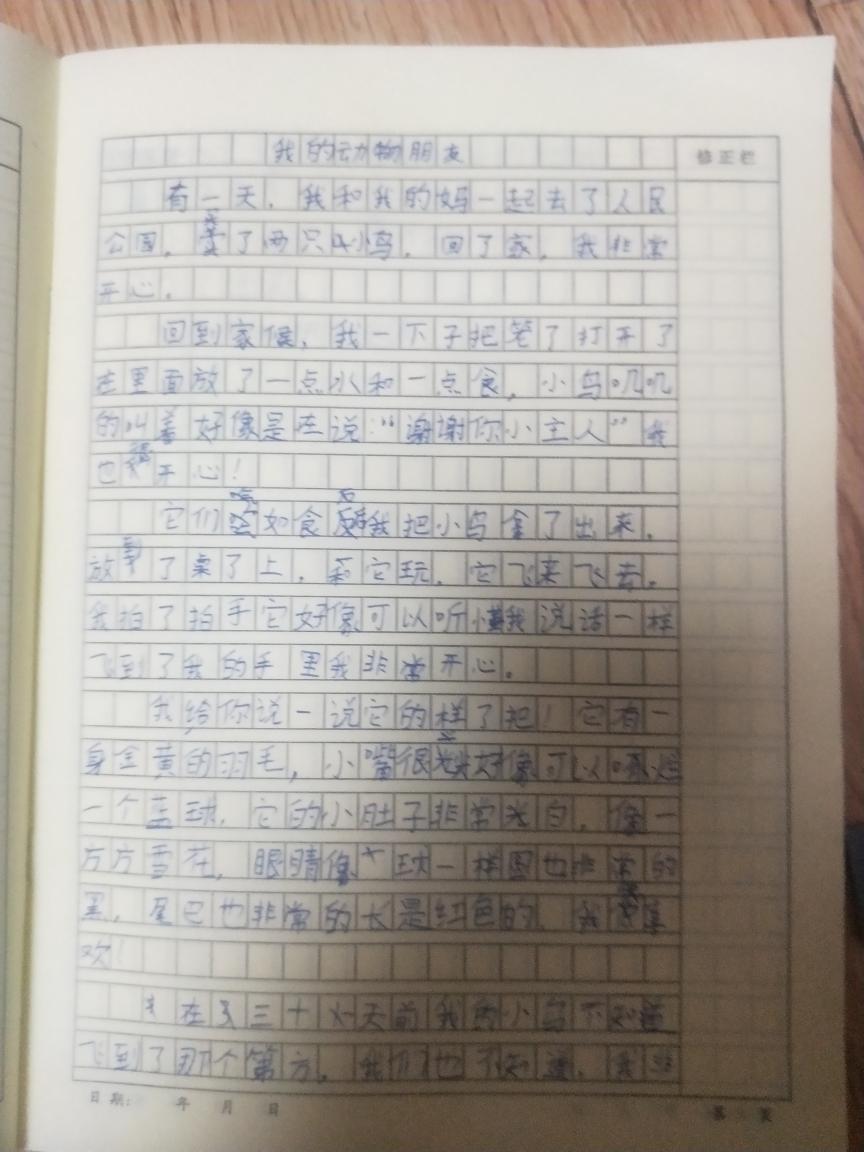 我的动物朋友
修正栏
有一天，我和我的妈一起去了人民
公园，卖了两只小鸟，回了家，我非常
开心。
回到家候，我一下子把笼了打开了
在里面放了一点水和一点食，小鸟叽叽
的叫着好像是在说：“谢谢你小主人”我
也很开心！
它们吃如食后我把小鸟拿了出来，
放到了桌了上，和它玩，它飞来飞去，
我拍了拍手它好像可以听懂我说话一样
飞到了我的手里我非常开心。
我给你说一说它的样了把！它有一
身金黄的羽毛，小嘴很尖好像可以啄烂
一个蓝球，它的小肚子非常光白，像一
方方雪花，眼睛像球一样圆也非常的
黑，尾巴也非常的长是红色的，我
欢！
在三十天前我的小鸟不知道
飞到了那个第方，我们也不知道，我非
日期： 年 月 日
第 页